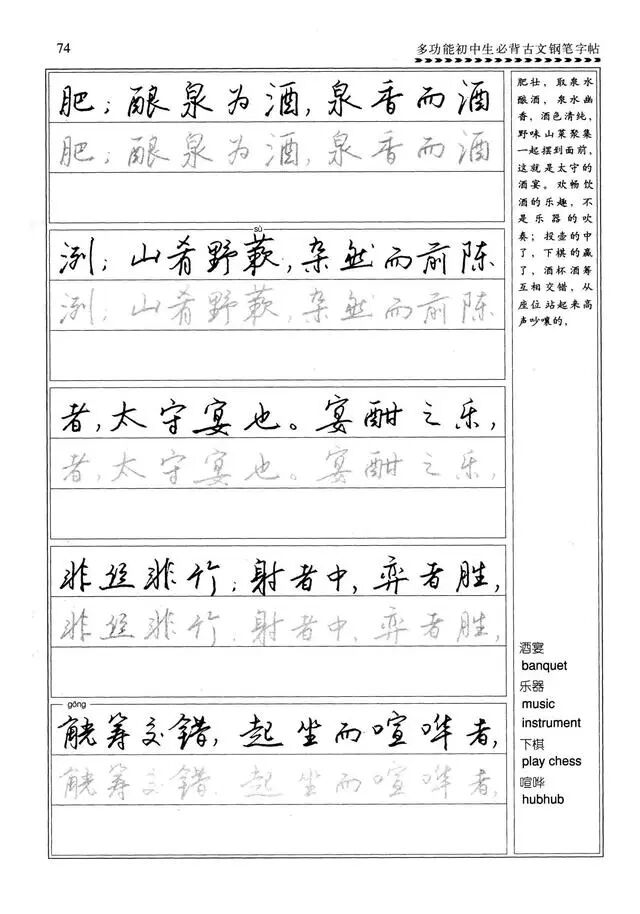 74
多功能初中生必背古文钢笔字帖
肥；酿泉为酒，泉香而酒
肥；酿泉为酒，泉香而酒
sù
洌；山肴野蔌，杂然而前陈
洌；山肴野蔌，杂然而前陈
者，太守宴也。宴酣之乐，
者，太守宴也。宴酣之乐，
非丝非竹；射者中，弈者胜，
非丝非竹；射者中，弈者胜，
gōng
觥筹交错，起坐而喧哗者，
觥筹交错，起坐而喧哗者，
肥壮，取泉水
酿酒，泉水幽
香，酒色清纯，
野味山菜聚集
一起摆到面前，
这就是太守的
酒宴。欢畅饮
酒的乐趣，不
是乐器的吹
奏；投壶的中
了，下棋的赢
了，酒杯酒筹
互相交错，从
座位站起来高
声吵嚷的，
酒宴
banquet
乐器
music
instrument
下棋
play chess
喧哗
hubhub